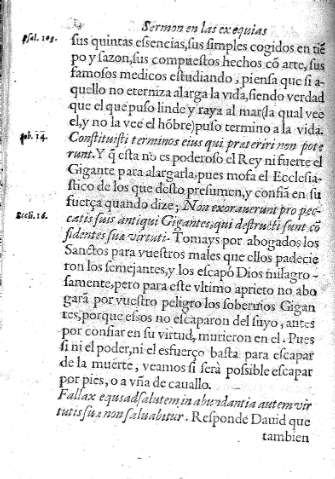 Sermon en las exequias
Psal. 103.
sus quintas essencias, sus simples cogidos en tiē
po y sazon, sus compuestos hechos cō arte, sus
famosos medicos estudiando, piensa que si a-
quello no eterniza alarga la vida, siendo verdad
que el que puso linde y raya al mar (la qual vee
el, y no la vee el hōbre) puso termino a la vida.
Job. 14.
Constituisti terminos eius qui præteriri non pote
runt. Y q̃ esta no es poderoso el Rey ni fuerte el
Gigante para alargarla, pues mofa el Ecclesia-
stico de los que desto presumen, y confiā en su
Eccli. 16.
fuerça quando dize; Non exorauerunt pro pec-
catis suis antiqui Gigantes, qui destructi sunt cō
fidentes suæ virtuti. Tomays por abogados los
Sanctos para vuestros males que ellos padecie
ron los semejantes, y los escapó Dios milagro-
samente, pero para este vltimo aprieto no abo
gará por vuestro peligro los soberuios Gigan
tes, porque essos no escaparon del suyo, antes
por confiar en su virtud, murieron en el. Pues
si ni el poder, ni el esfuerço basta para escapar
de la muerte, veamos si será possible escapar
por pies, o a vña de cauallo.
Fallax equus ad salutem, in abundantia autem vir
tutis suæ non saluabitur. Responde Dauid que
tambien